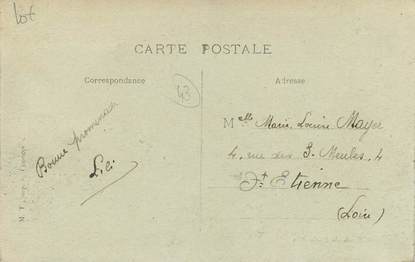 lot
CARTE POSTALE
Correspondance
43
Adresse
Melle Marie Louise Mayer
4, rue des 3. Meules, 4
St Etienne
(Loire)
Bonne promenade
Lili